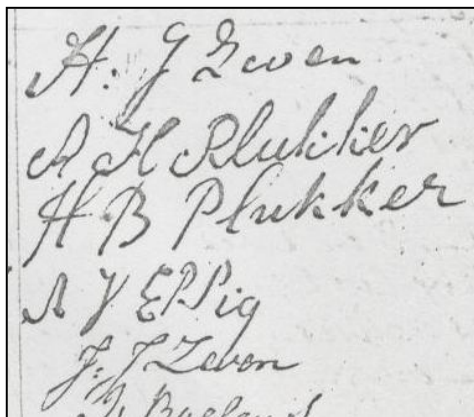 H. J Zeven
A H Plukker
H B Plukker
A J Eppig
J. J Zeven